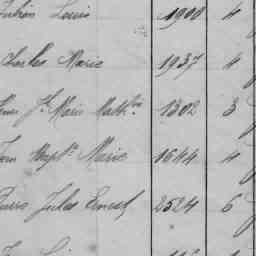 Louis 1900 4
Charles Marie 1937 4
Je Marie Math. 1302 3
Jean Bapte Marie 1644 4
Pierre Jules Ernest 2524 6